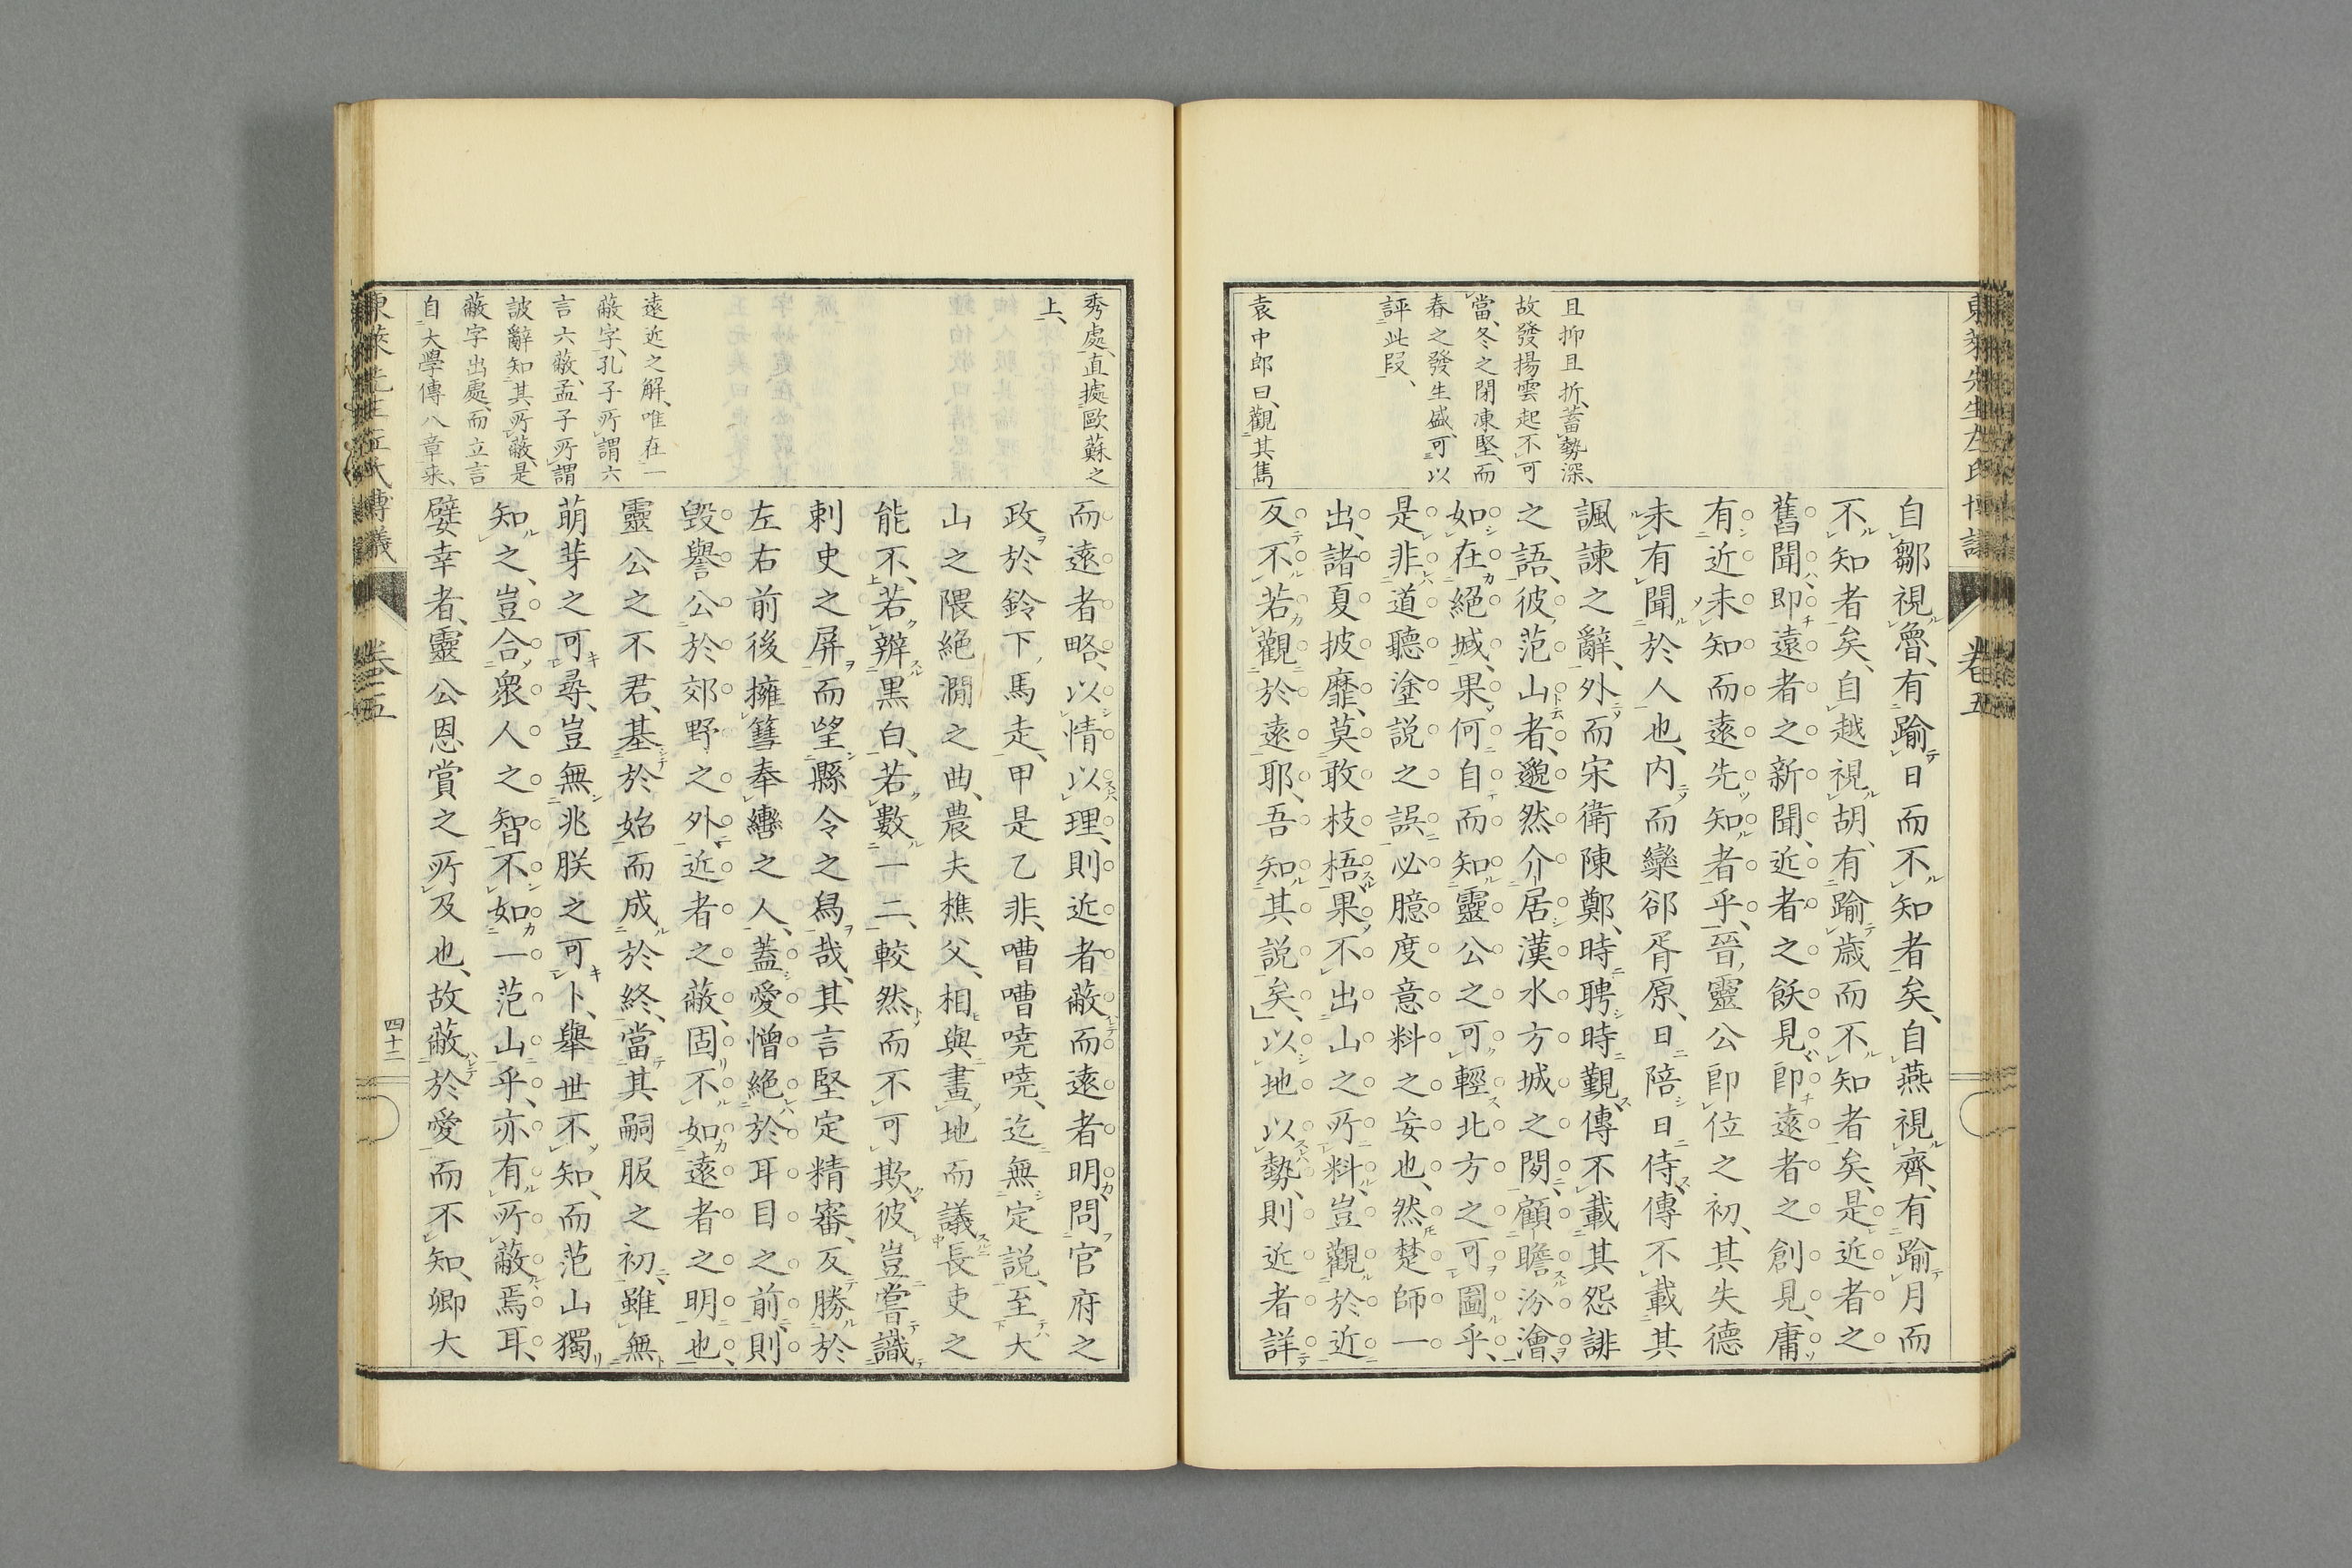 東萊先生左氏博議
卷五
且抑且折、蓄勢深、
故發揚雲起、不可
當、冬之閉凍堅、而
春之發生盛、可以
評此段、
袁中郎曰、觀其雋
自鄒視魯、有踰日而不知者矣、自燕視齊、有踰月而
不知者矣、自越視胡、有踰歲而不知者矣、是近者之
舊聞、即遠者之新聞、近者之飫見、即遠者之創見、庸
有近未知而遠先知者乎、晉靈公即位之初、其失德
未有聞於人也、内而欒郤胥原、日陪日侍、傳不載其
諷諫之辭、外而宋衛陳鄭、時聘時覲、傳不載其怨誹
之語、彼范山者、邈然介居漢水方城之間、顧瞻汾澮、
如在絕域、果何自而知靈公之可輕、北方之可圖乎、
是非道聽塗説之誤、必臆度意料之妄也、然楚師一
出、諸夏披靡、莫敢枝梧、果不出山之所料、豈觀於近
反不若觀於遠耶、吾知其説矣、以地以勢、則近者詳
秀處、直據歐蘇之
上、
遠近之解、唯在一
蔽字、孔子所謂六
言六蔽、孟子所謂
詖辭知其所蔽、是
蔽字出處、而立言
自大學傳八章來、
而遠者略、以情以理、則近者蔽而遠者明、問官府之
政於鈴下、馬走、甲是乙非、嘈嘈嘵嘵、迄無定説、至大
山之隈絕澗之曲、農夫樵父、相與畫地而議長吏之
能不、若辨黑白、若數一二、較然而不可欺、彼豈嘗識
刺史之屏而望縣令之舄哉、其言堅定精審、反勝於
左右前後擁篲奉轡之人、蓋愛憎絕於耳目之前、則
毀譽公於郊野之外、近者之蔽、固不如遠者之明也、
靈公之不君、基於始而成於終、當其嗣服之初、雖無
萌芽之可尋、豈無兆朕之可卜、舉世不知、而范山獨
知之、豈合衆人之智、不如一范山乎、亦有所蔽焉耳、
嬖幸者、靈公恩賞之所及也、故蔽於愛而不知、卿大
東萊先生左氏博議
卷五
四十二